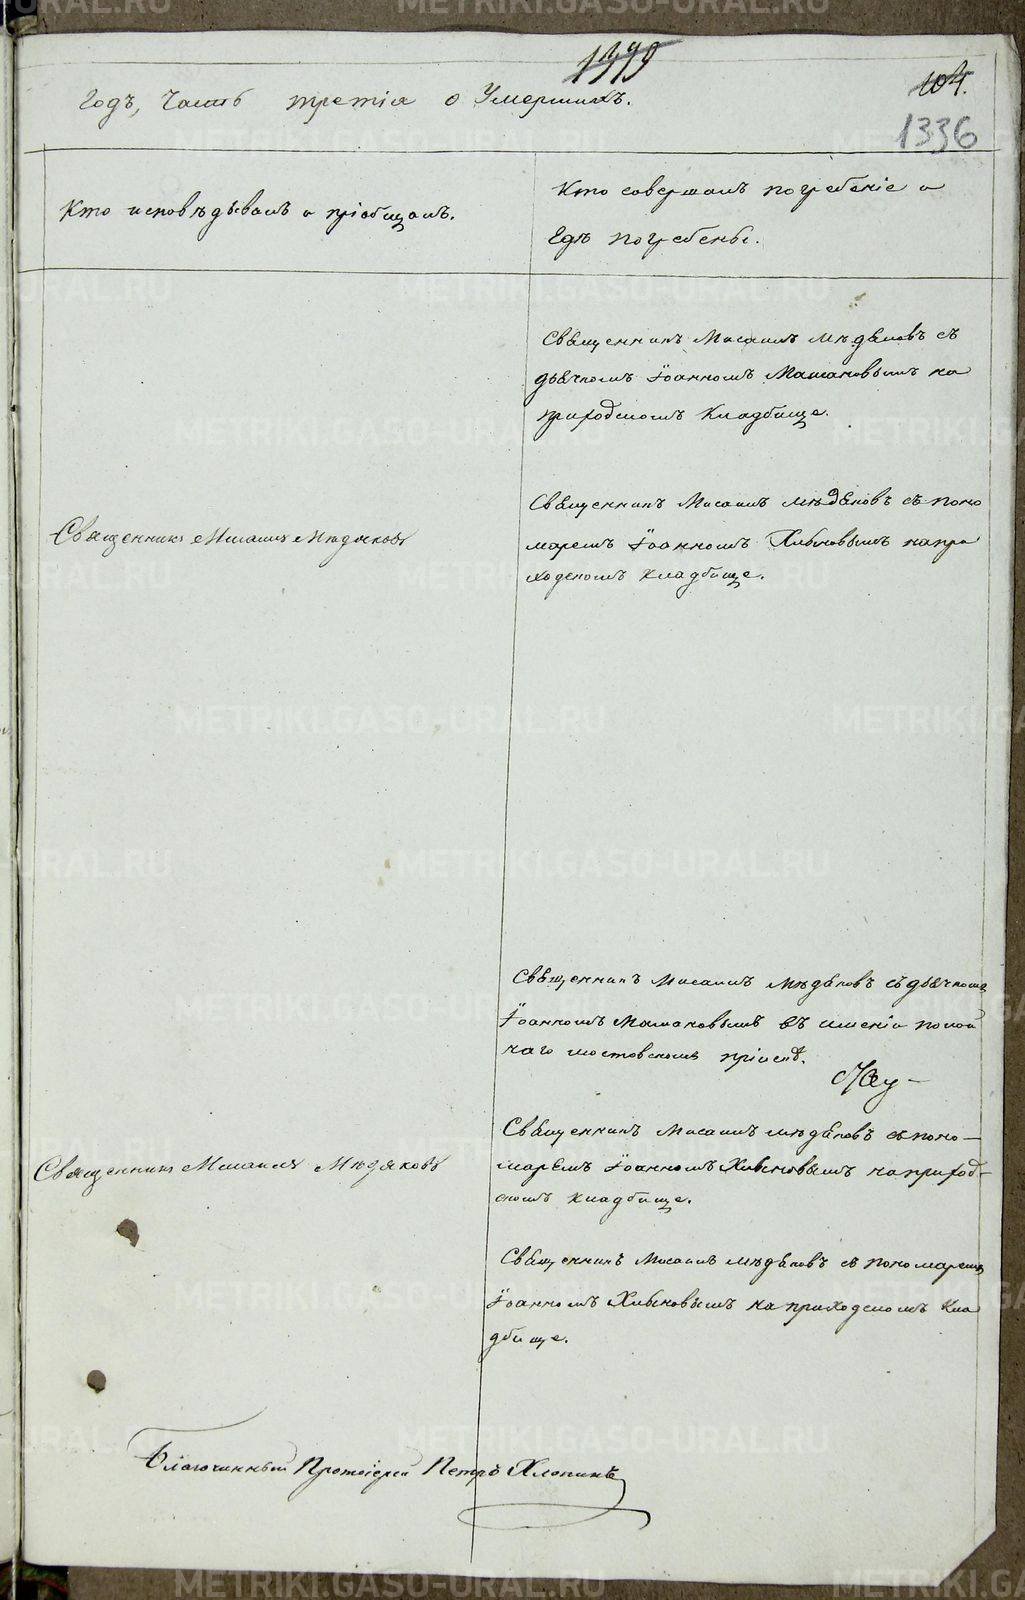 1399
104.
1336
Годъ, Часть третія о Умершихъ.
Кто исповѣдывалъ и пріобщалъ.
Кто совершалъ погребеніе и
Гдѣ погребены.
Священникъ Мисаилъ Мѣдяковъ съ
дьячкомъ Іоанномъ Мамановымъ на
приходскомъ Кладбище.
Священникъ Мисаилъ Мѣдяковъ
Священникъ Мисаилъ Мѣдяковъ съ поно
маремъ Іоанномъ Хлыновымъ на при
ходскомъ кладбище.
Священникъ Мисаилъ Мѣдяковъ съ дьячкомъ
Іоанномъ Мамановымъ въ имѣніи
мостовскомъ
Священникъ Мисаилъ Мѣдяковъ
Священникъ Мисаилъ Мѣдяковъ съ поно-
маремъ Іоанномъ Хлыновымъ на приход-
скомъ кладбище.
Священникъ Мисаилъ Мѣдяковъ съ пономаремъ
Іоанномъ Хлыновымъ на приходскомъ Кла
дбище.
Благочинный Протоіерей Петръ Хлопинъ
METRIKI.GASO-URAL.RU